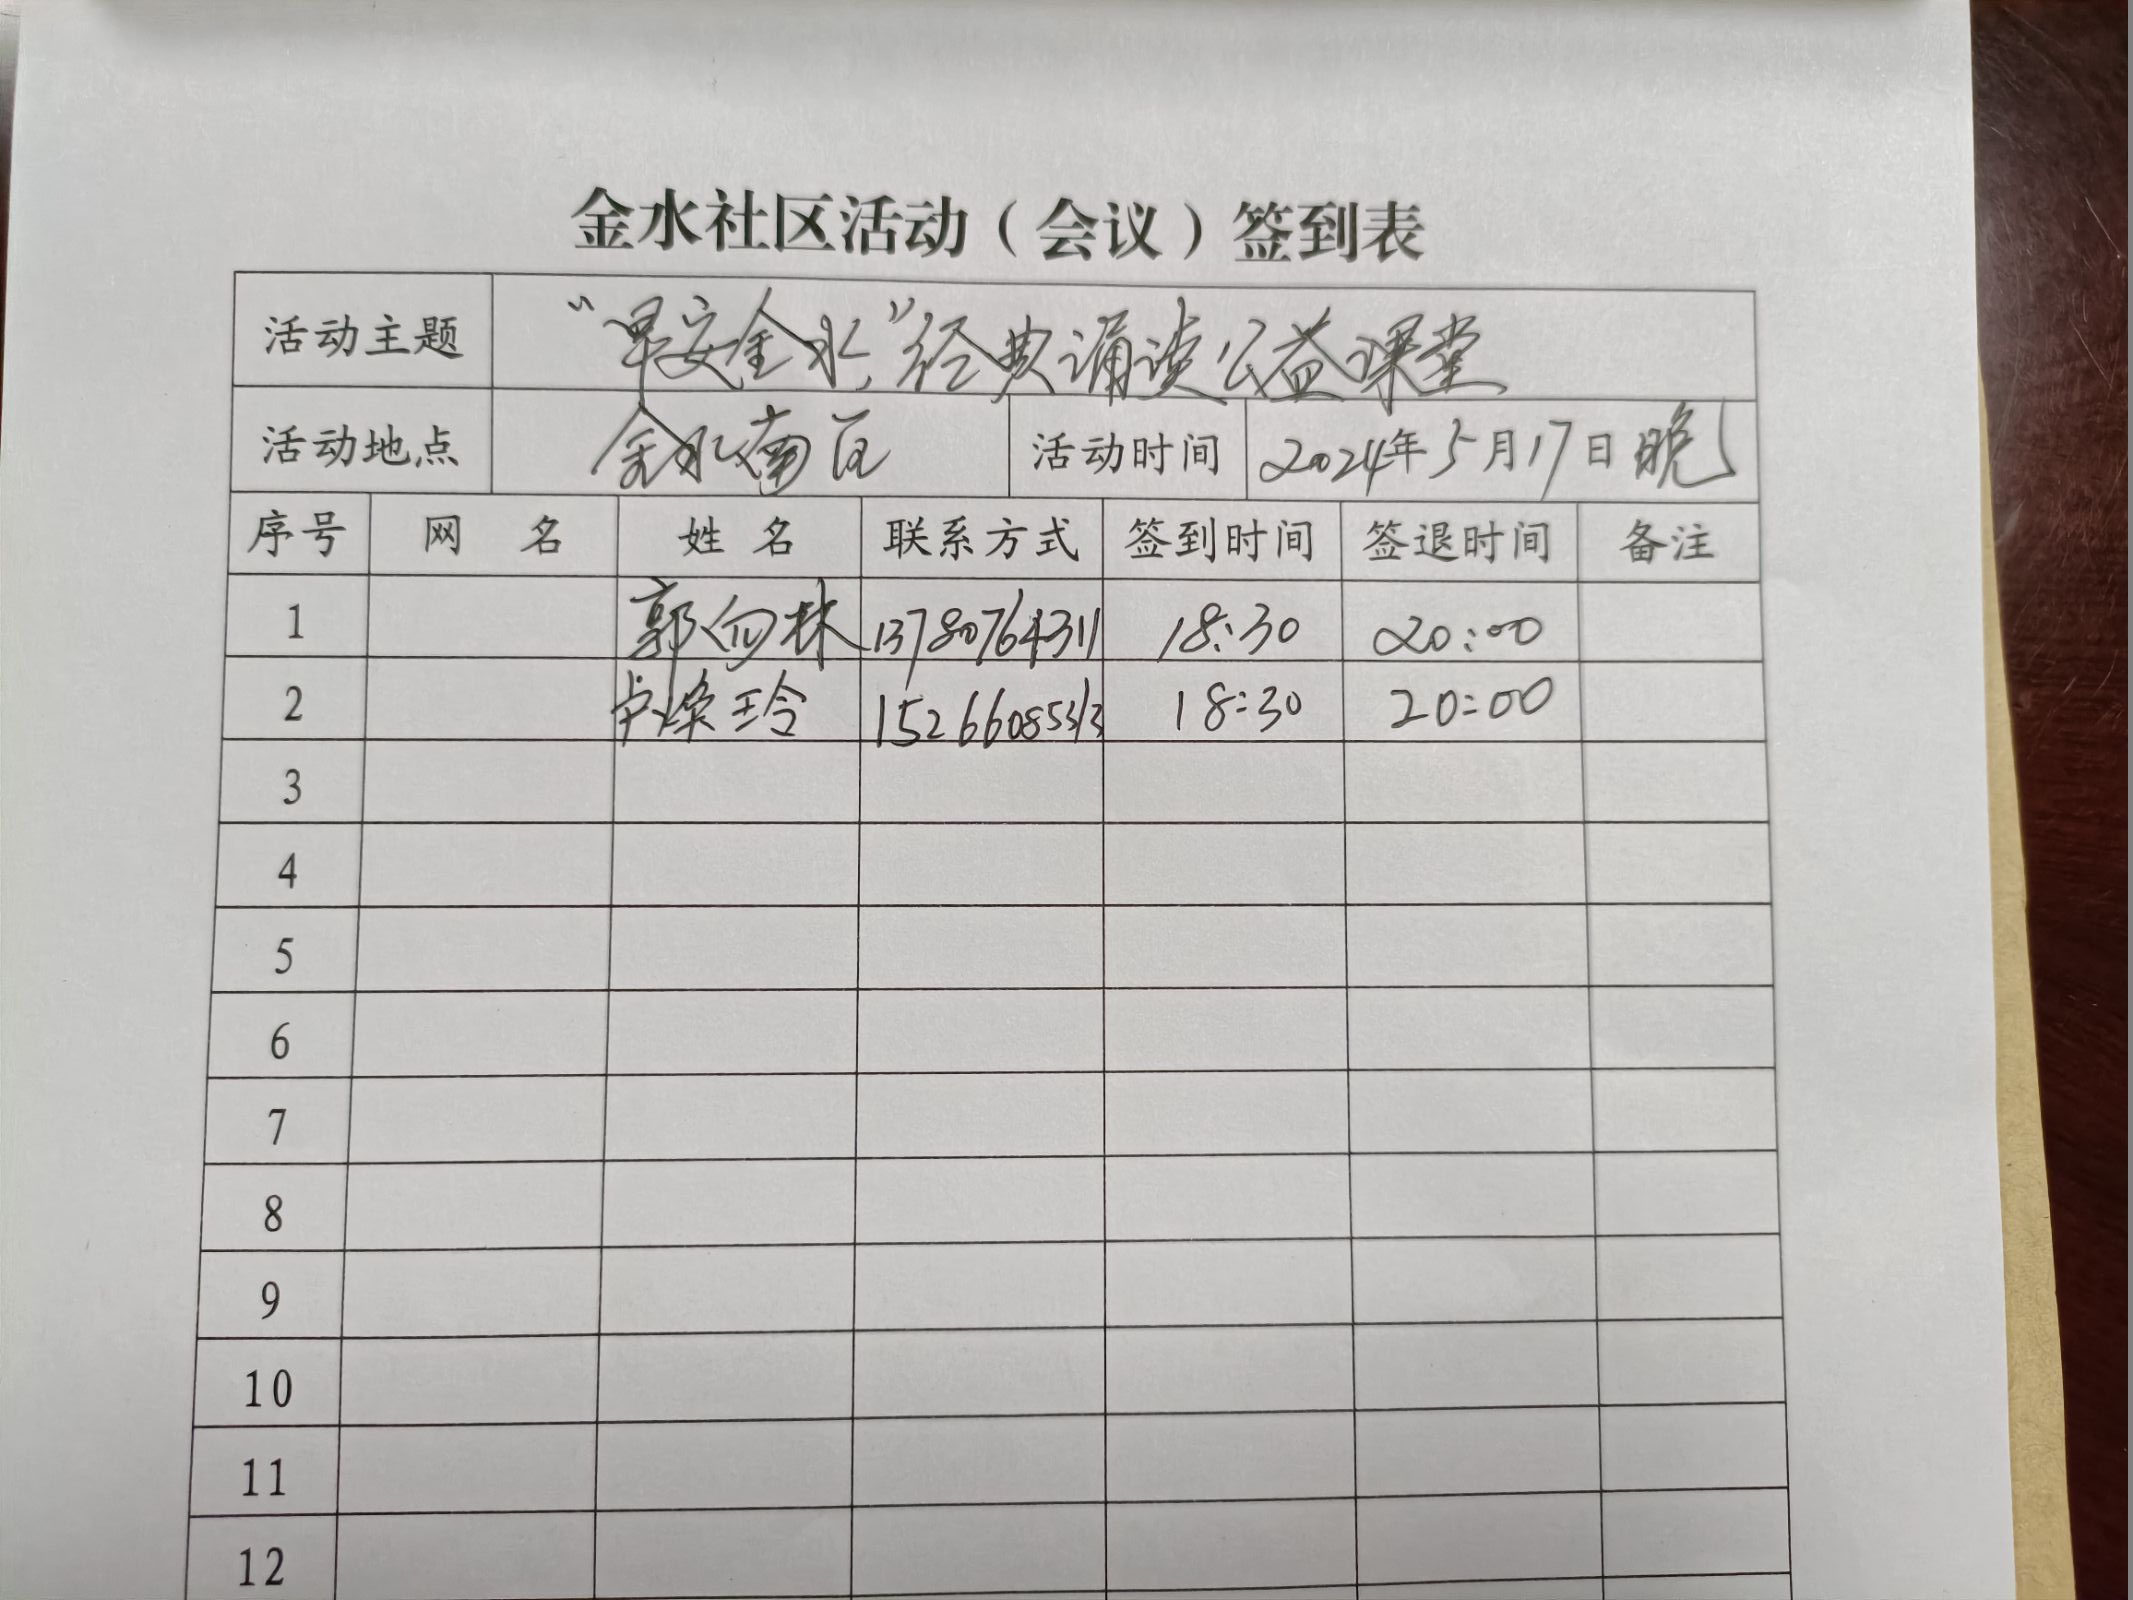 金水社区活动（会议）签到表
活动主题 “早安金水”经典诵读公益课堂
活动地点 金水南区 活动时间 2024年5月17日晚
序号 网 名 姓 名 联系方式 签到时间 签退时间 备注
1 郭向林 13780764311 18:30 20:00
2 卢焕玲 15266085313 18:30 20:00
3
4
5
6
7
8
9
10
11
12